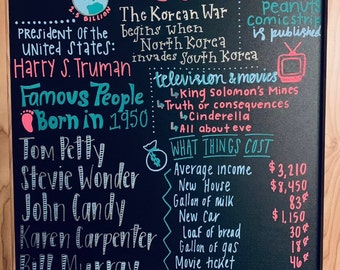 2.5 BILLION
PRESIDENT OF the
UNITED STATES:
HARRY S. TRUMAN
Famous People
Born in 1950
Tom Petty
Stevie Wonder
John Candy
Karen Carpenter
Bill Murray
The Korean War
begins when
North Korea
invades South Korea
Peanuts
comic strip
is published
television & movies
King Solomon's Mines
Truth or consequences
Cinderella
All about eve
WHAT THINGS COST
Average income $3,210
New House $8,450
Gallon of milk 83¢
New Car $1,150
Loaf of bread 30¢
Gallon of gas 18¢
Movie ticket 46¢